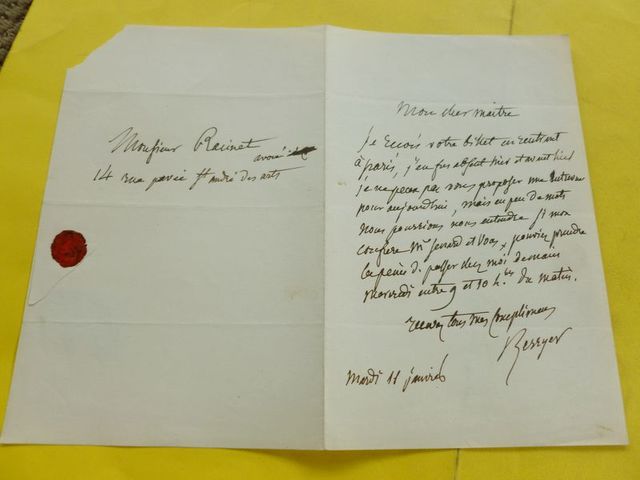 Monsieur Racinet
avoué
14 rue pavée St André des arts
Mon cher maître
Je reçois votre billet en rentrant
à paris, j'en fus absent hier et avant hier
je ne peux pas vous proposer une
pour aujourdhui, mais en peu de mots
nous pourrions nous entendre si mon
confrère Mr et vous pouviez prendre
la peine de passer chez moi demain
mercredi entre 9 et 10 hres du matin.
recevez tous mes complimens
Berryer
Mardi 11 janvier